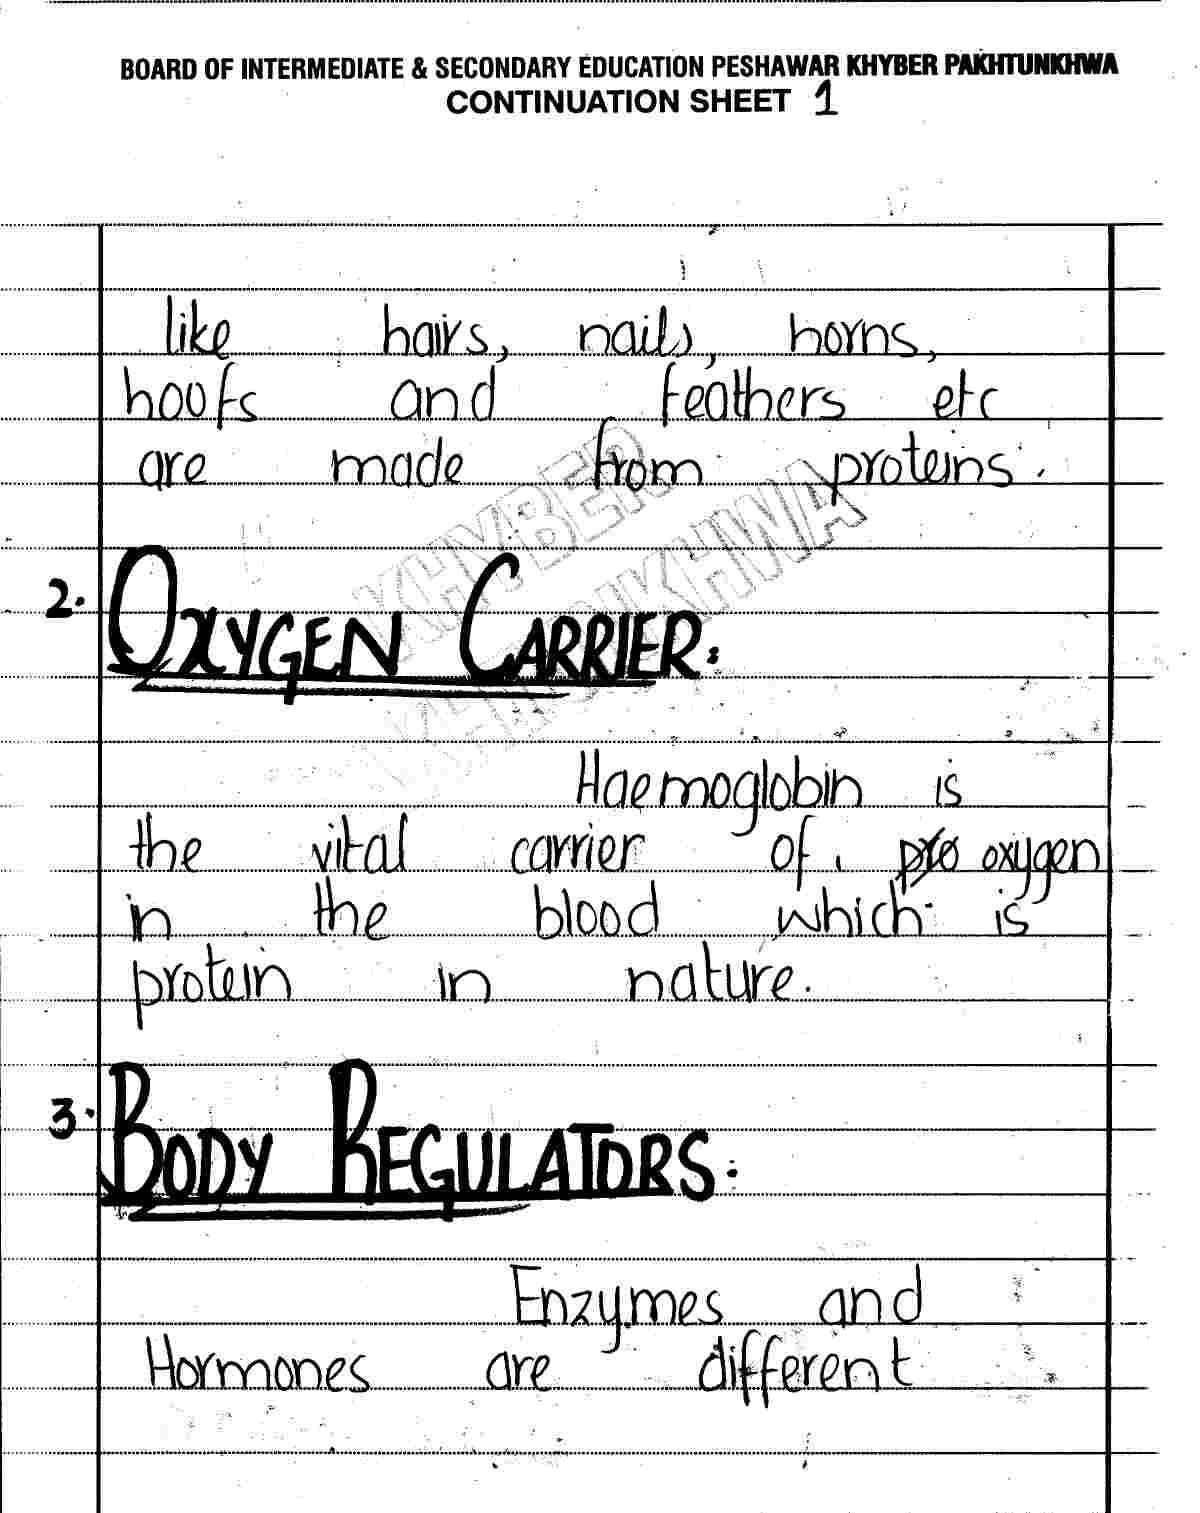 BOARD OF INTERMEDIATE & SECONDARY EDUCATION PESHAWAR KHYBER PAKHTUNKHWA
CONTINUATION SHEET 1
like hairs, nails, horns,
hoofs and feathers etc
are made from proteins.
KHYBER
2. OXYGEN CARRIER:
Haemoglobin is
the vital carrier of pro oxygen
in the blood which is
protein in nature.
3. BODY REGULATORS:
Enzymes and
Hormones are different